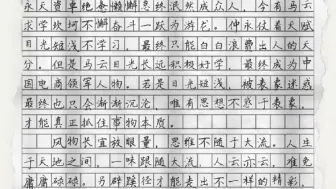 永天资卓绝奢懒懈怠终泯然成众人,今有马云
求学坎坷不懈奋斗一跃为游龙。仲永仗着天赋
目光短浅不学习,最终只能白白浪费出人的天
分。但是马云目光长远积极好学,最终成为中
国电商领军人物。若是目光短浅,被表象迷惑
最终也只会渐渐沉沦,唯有思想不惑于表象,
才能真正抓住事物本质。
风物长宜放眼量,思维不随于大流。人生
于天地之间,一味跟随大流,人云亦云,难免
庸庸碌碌。另辟蹊径才能走出不一样的精彩。